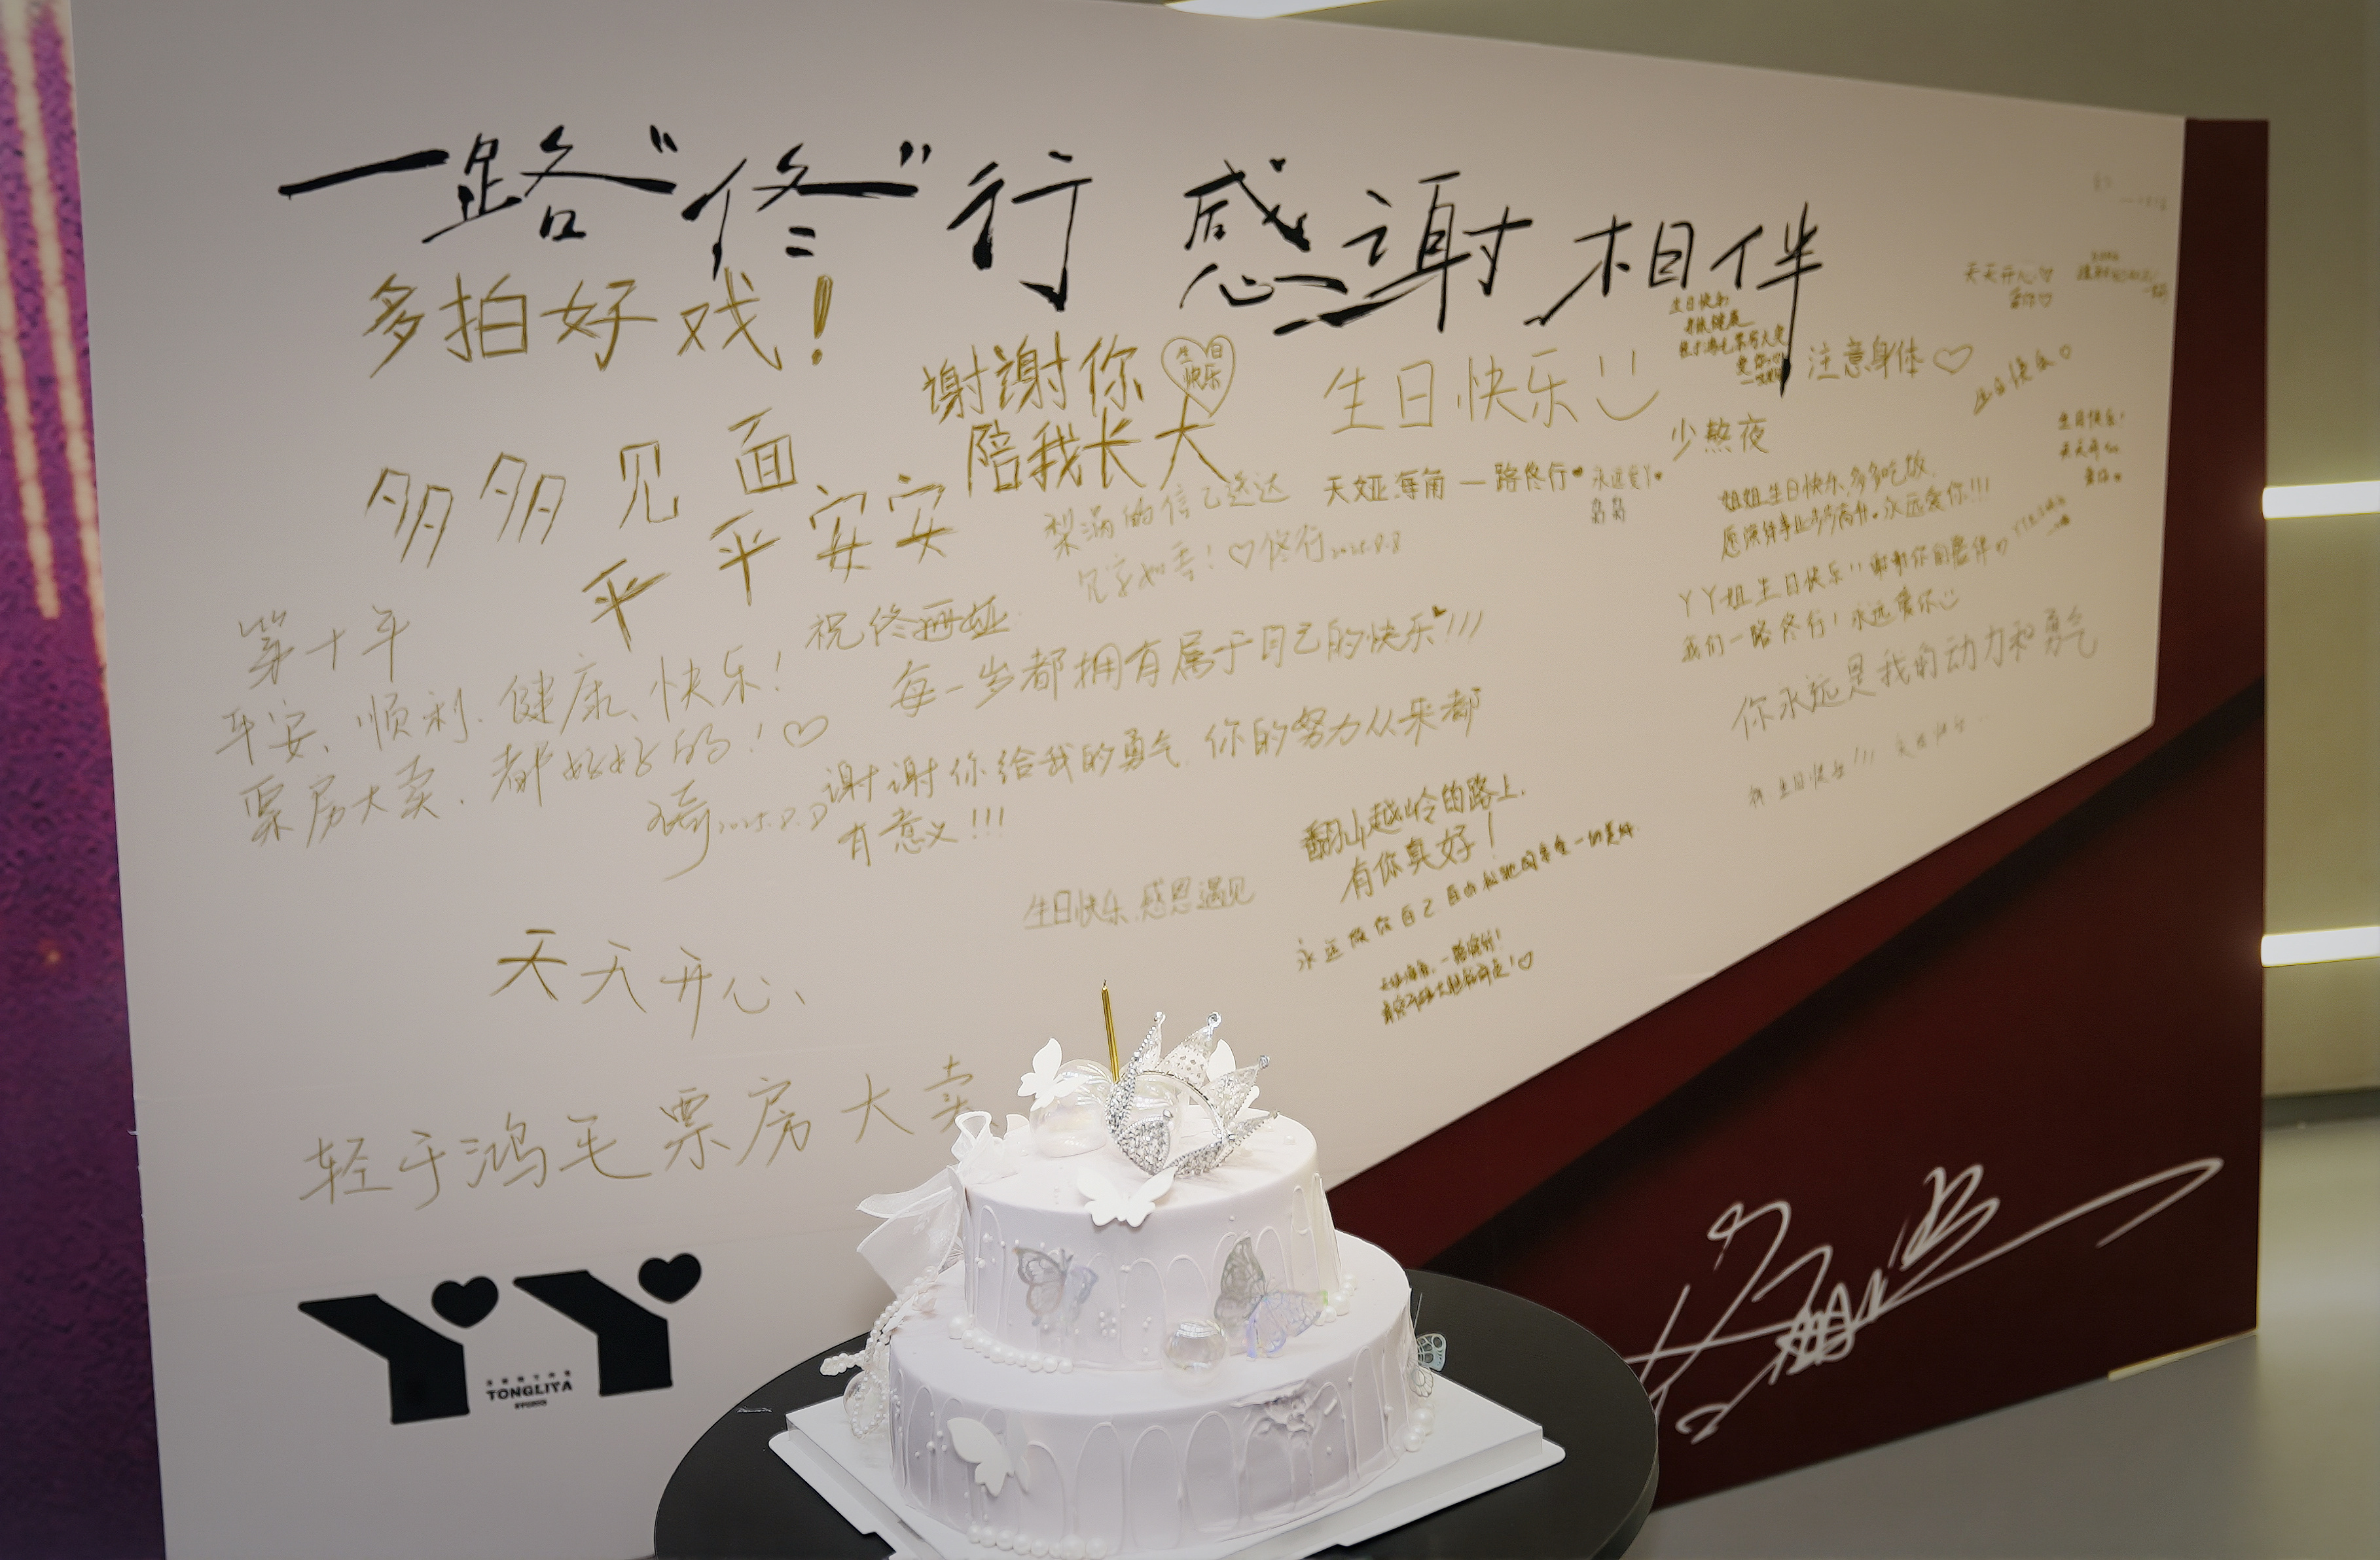 一路“佟”行 感谢相伴
多拍好戏!
谢谢你
生日
快乐
陪我长大
生日快乐
生日快乐
注意身体♡
少熬夜
天天开心♡
爱你♡
生日快乐♡
生日快乐!
多多见面
平平安安
梨涡的信已送达
见字如吾!♡佟行2025.8.8
天娅海角一路佟行♥
永远爱YY
姐姐生日快乐,多多吃饭,
愿演绎事业步步高升·永远爱你!!!
YY姐生日快乐!!谢谢你的陪伴
我们一路佟行!永远爱你
你永远是我的动力和勇气
生日快乐!!!
第十年
平安、顺利、健康、快乐!
票房大卖、都好好的!♡
祝佟丽娅
每一岁都拥有属于自己的快乐♥!!!
谢谢你给我的勇气,你的努力从来都
有意义!!!
翻山越岭的路上,
有你真好!
生日快乐,感恩遇见
永远做你自己
天天开心、
轻于鸿毛票房大卖
YY
TONGLIYA
STUDIO